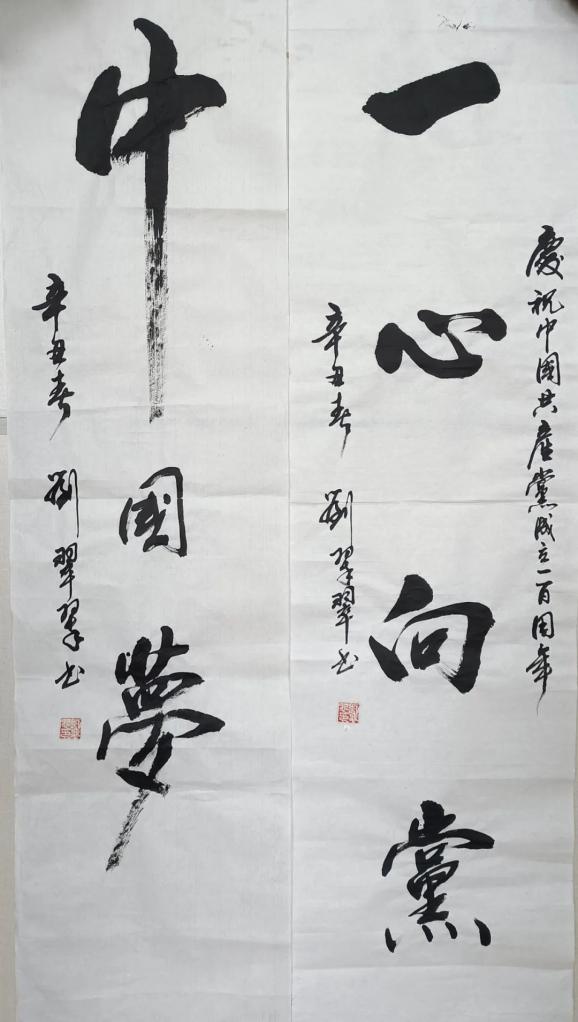 慶祝中國共產黨成立一百周年
一心向黨
辛丑春 劉翠翠书
中國夢
辛丑春 劉翠翠书